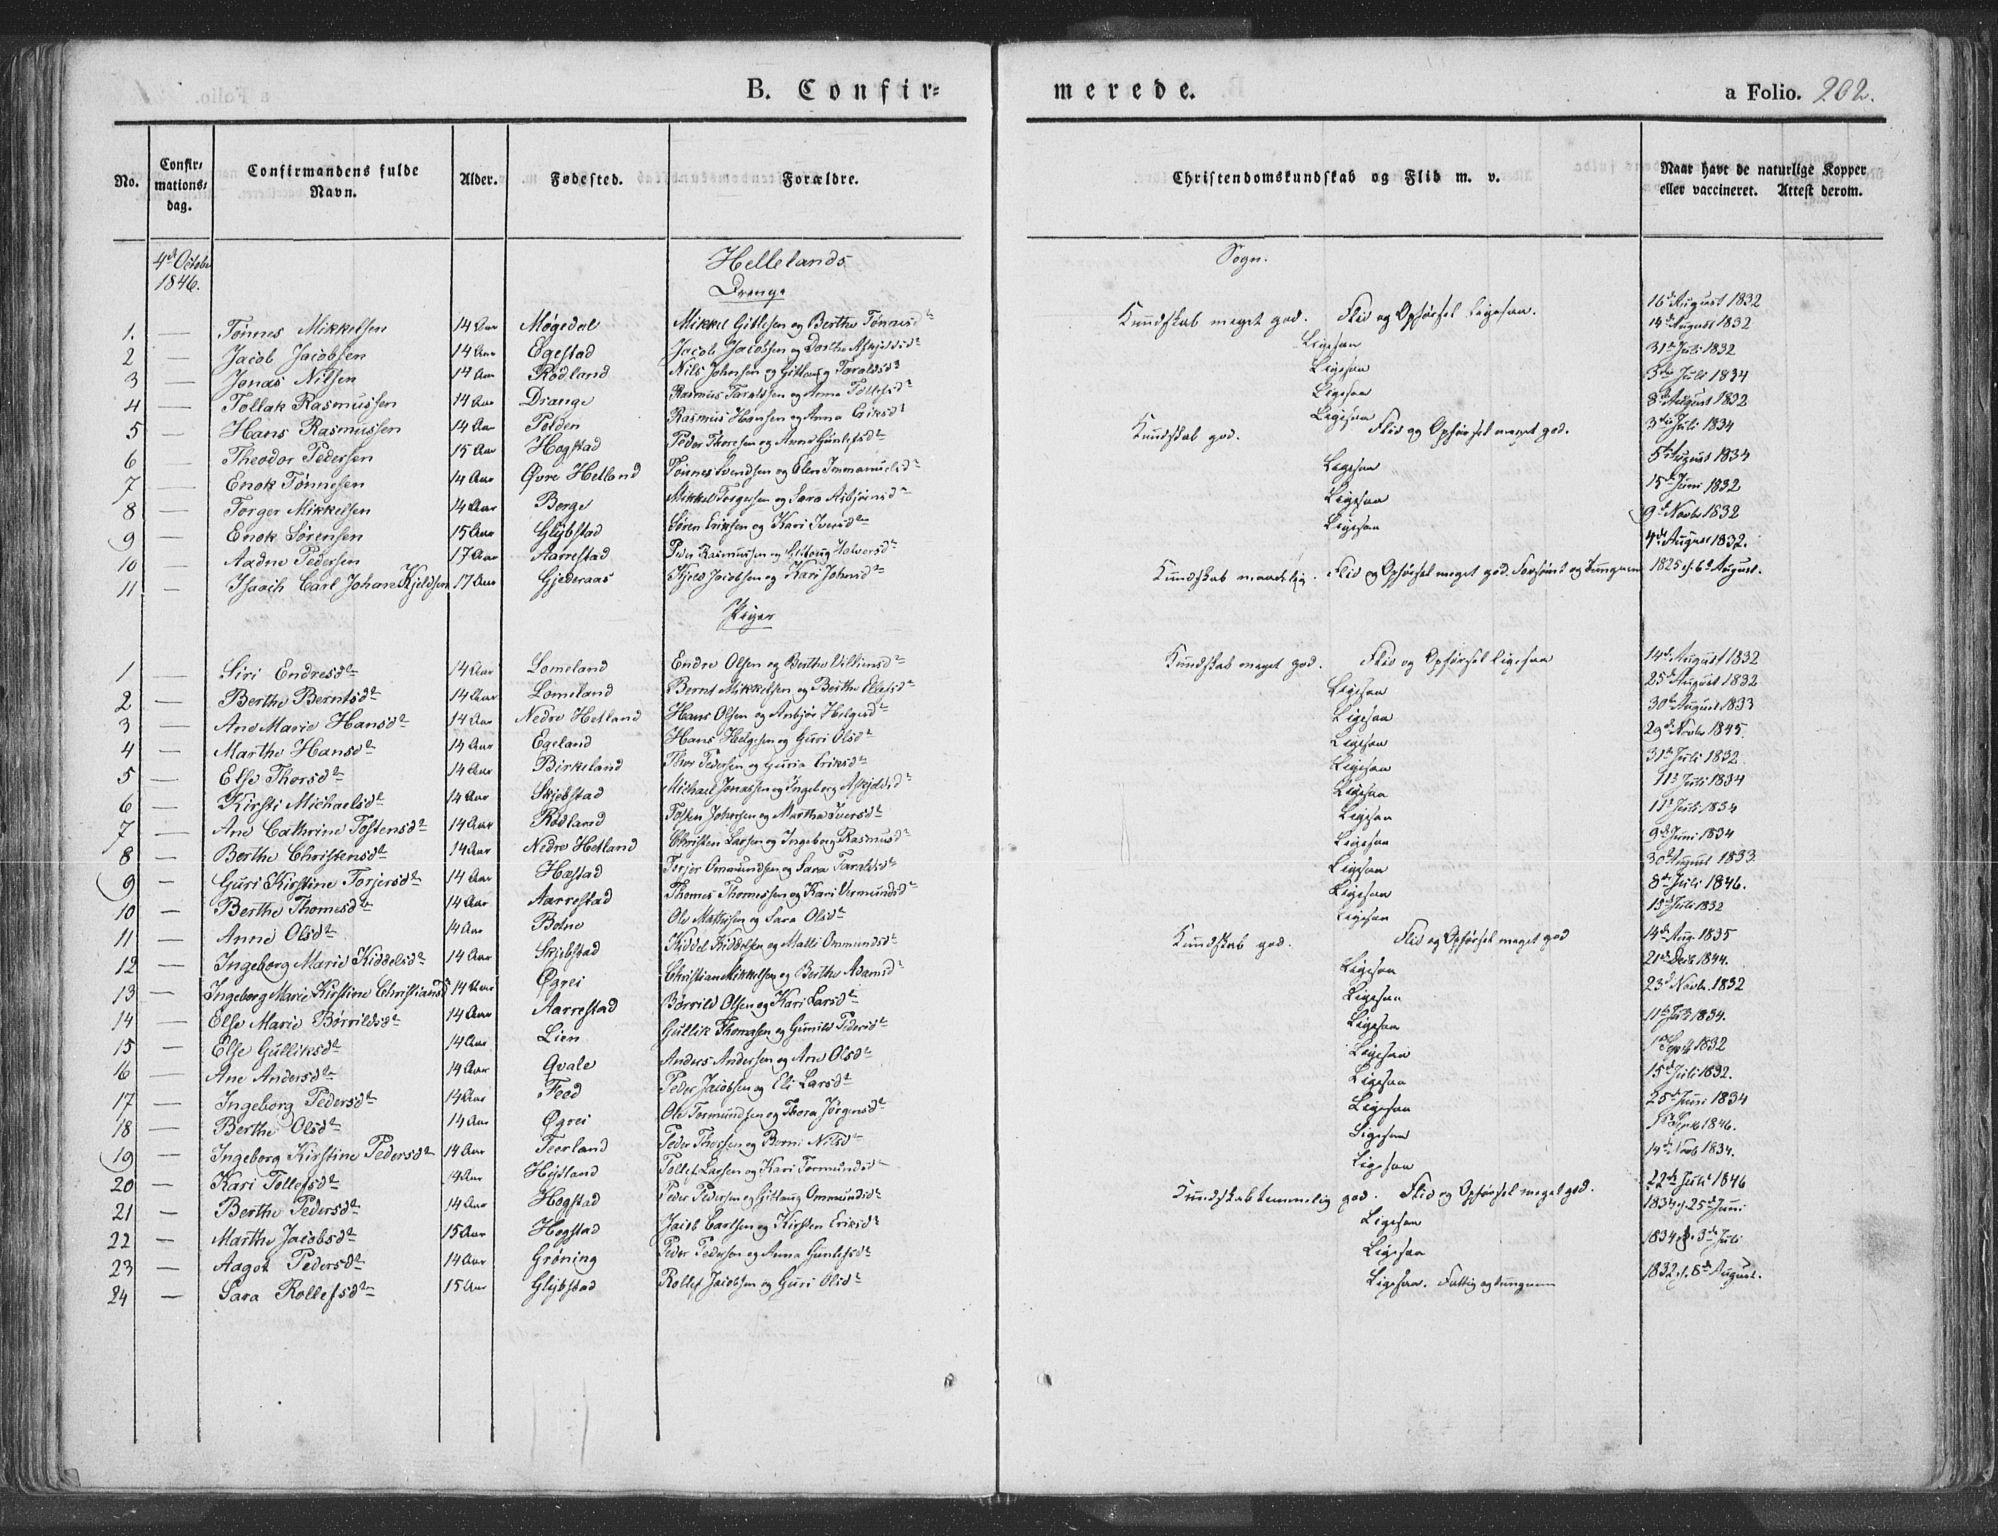 B. Confir=
merede.
a Folio. 202.
No. Confir-mations-dag. Confirmandens fulde Navn. Alder. Fødested. Forældre. Christendomskundskab og Flid m. v. Naar havt de naturlige Kopper eller vaccineret. Attest derom.
4de Octobr 1846. Hellelands Sogn.
Drenge
1. — Tønnes Mikkelsen 14 Aar Møgedal Mikkel Gitlesen og Berthe Tønnesdr Kundskab meget god. Flid og Opførsel ligesaa. 16de August 1832
2 — Jacob Jacobsen 14 Aar Egestad Jacob Jacobsen og Dorthe Askjeldsdr Ligesaa 14de August 1832
3 — Jonas Nilsen 14 Aar Rødland Nils Johnsen og Gitlaug Taraldsdr Ligesaa 31te Juli 1832
4 — Tollak Rasmussen 14 Aar Drange Rasmus Taraldsen og Anna Tollefsdr Ligesaa 3die Juli 1834
5 — Hans Rasmussen 14 Aar Tolden Rasmus Hansen og Anna Eriksdr Ligesaa 8de August 1832
6 — Theodor Pedersen 15 Aar Hogstad Peder Thorsen og Anne Gunlefsdr Kundskab god. Flid og Opførsel meget god. 3die Juli 1834
7 — Enok Tønnesen 14 Aar Øvre Hetland Tønnes Svendsen og Elen Immanuelsdr Ligesaa 5te August 1834
8 — Torger Mikkelsen 14 Aar Berge Mikkel Torgersen og Sara Asbjørnsdr Ligesaa 15de Juni 1832
9 — Enok Sørensen 15 Aar Gljbstad Søren Eriksen og Kari Iversdr Ligesaa 9de Novbr 1832
10 — Aadne Pedersen 17 Aar Aarrestad Peder Rasmussen og Gitlaug Halvorsdr 4de August 1832.
11 — Isaach Carl Johan Kjeldsen 17 Aar Gjederaas Kjeld Jacobsen og Kari Johnsdr Kundskab maadelig. Flid og Opførsel meget god. Forsømt og tungnem 1825 d. 6te August.
Piger
1 — Siri Endresdr 14 Aar Lomeland Endre Olsen og Berthe Villumsdr Kundskab meget god. Flid og Opførsel ligesaa 14de August 1832
2 — Berthe Berntsdr 14 Aar Lomeland Bernt Mikkelsen og Berthe Ellefsdr Ligesaa 25de August 1832
3 — Ane Marie Hansdr 14 Aar Nedre Hetland Hans Olsen og Anbjør Helgesdr Ligesaa 30te August 1833
4 — Marthe Hansdr 14 Aar Egeland Hans Helgesen og Guri Olsdr Ligesaa 29de Novbr 1845.
5 — Else Thorsdr 14 Aar Birkeland Thor Pedersen og Guria Eriksdr Ligesaa 31te Juli 1832.
6 — Kirsti Michaelsdr 14 Aar Skjebstad Michael Jonassen og Ingeborg Askjeldsdr Ligesaa 11te Juli 1834
7 — Ane Cathrine Tostensdr 14 Aar Rødland Tosten Johnsen og Martha Iversdr Ligesaa 11te Juli 1834
8 — Berthe Christensdr 14 Aar Nedre Hetland Christen Larsen og Ingeborg Rasmusdr Ligesaa 9de Juni 1834
9 — Guri Kirstine Torjersdr 14 Aar Hæstad Torjer Ommundsen og Sara Taraldsdr Ligesaa 30te August 1833.
10 — Berthe Thomesdr 14 Aar Aarrestad Thomes Thomessen og Kari Vermundsdr Ligesaa 8de Juli 1846.
11 — Anne Olsdr 14 Aar Botne Ole Mathisen og Sara Olsdr Ligesaa 15de Juli 1832
12 — Ingeborg Marie Kiddelsdr 14 Aar Skjebstad Kiddel Kiddelsen og Malli Ommundsdr Kundskab god. Flid og Opførsel meget god 14de Aug. 1835
13 — Ingeborg Marie Kirstine Christiansdr 14 Aar Øgrei Christian Mikkelsen og Berthe Adamsdr Ligesaa 21de Decbr 1844.
14 — Else Marie Børrildsdr 14 Aar Aarrestad Børrild Olsen og Kari Larsdr Ligesaa 23de Novbr. 1832
15 — Else Gulliksdr 14 Aar Lien Gullik Thomasen og Gunild Pedersdr Ligesaa 11te Juli 1834.
16 — Ane Andersdr 14 Aar Qvale Anders Andersen og Ane Olsdr Ligesaa 1ste Septb 1832
17 — Ingeborg Pedersdr 14 Aar Feod Peder Jacobsen og Eli Larsdr Ligesaa 15de Juli 1832.
18 — Berthe Olsdr 14 Aar Øgrei Ole Tormundsen og Thora Jørgensdr Ligesaa 25de Juni 1834
19 — Ingeborg Kirstine Pedersdr 14 Aar Teerland Peder Thorsen og Berni Nilsdr Ligesaa Septb 1846.
20 — Kari Tollefsdr 14 Aar Hejtland Tollef Larsen og Kari Tormundsdr Ligesaa 14de Novb 1834.
21 — Berthe Pedersdr 14 Aar Hogstad Peder Pedersen og Gitlaug Ommundsdr Kundskab temmelig god. Flid og Opførsel meget god. 22de Juli 1846
22 — Marthe Jacobsdr 15 Aar Hogstad Jacob Carlsen og Kirsten Eriksdr Ligesaa 1834 d. 25de Juni
23 — Aagot Pedersdr 14 Aar Grøning Peder Pedersen og Anna Gunlefsdr Ligesaa 1834 d. 3de Juli
24 — Sara Rollefsdr 15 Aar Gljbstad Rollef Jacobsen og Guri Olsdr Ligesaa. Fattig og tungnem 1832 d. 8de August.